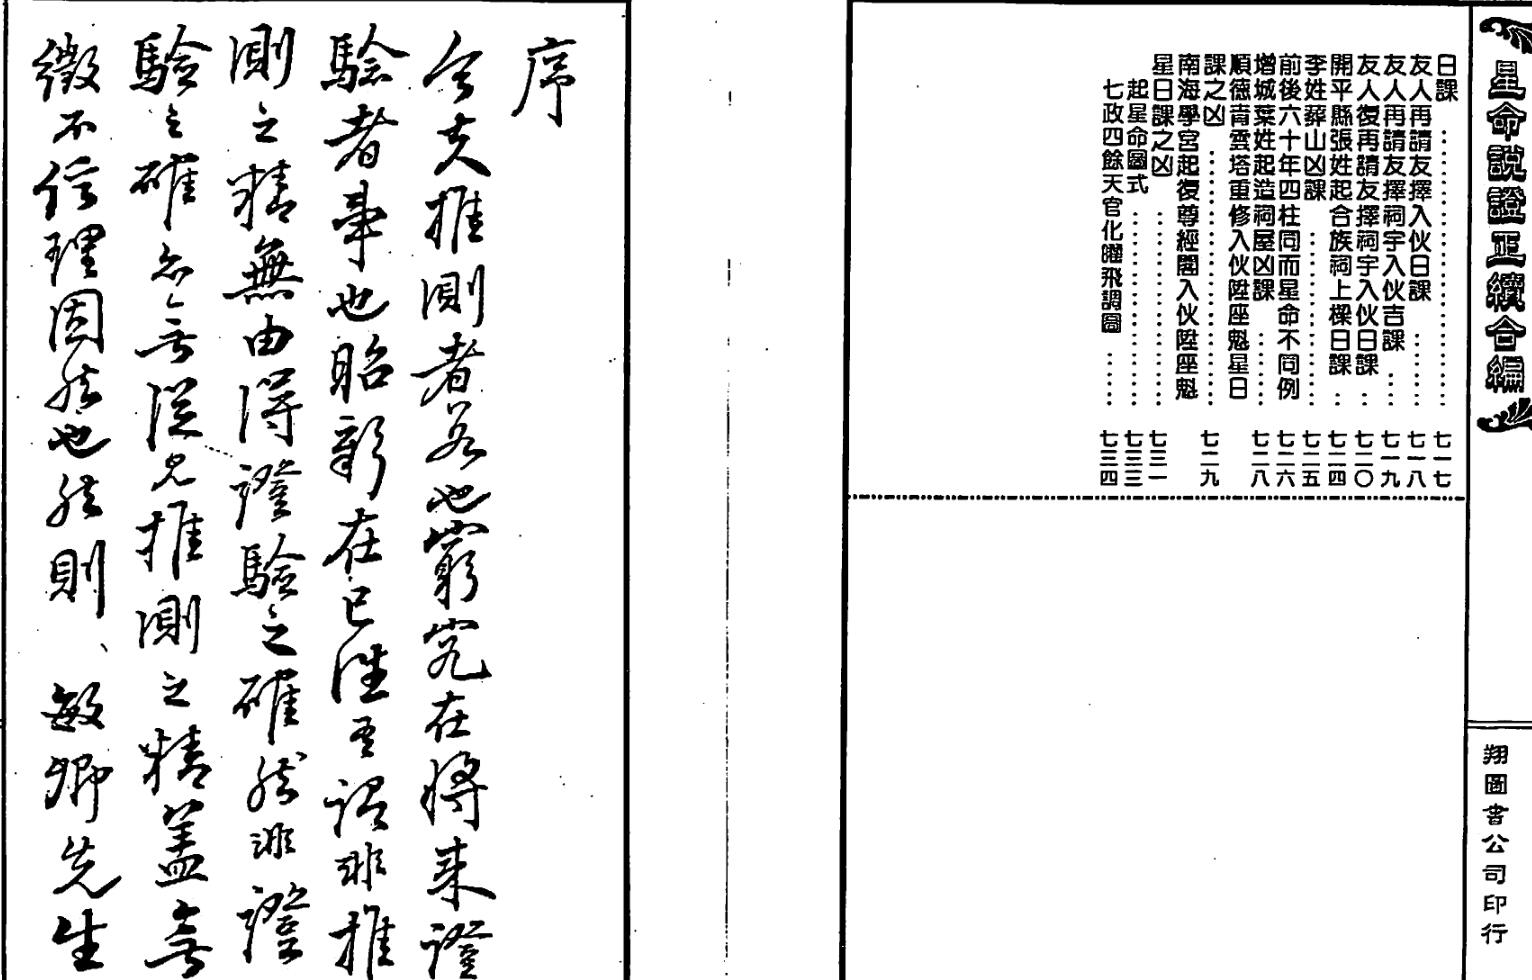 星命說證正續合編
翔圖書公司印行
日課……七一七
友人再請友擇祠宇入伙日課……七一八
友人再請友擇祠宇入伙吉課…七一九
友人復再請友擇祠宇入伙日課…七二〇
開平縣張姓起合族祠上樑日課…七二四
李姓葬山凶課……七二五
前後六十年四柱同而星命不同例 七二六
增城葉姓起造祠屋凶課……七二八
順德青雲塔重修入伙陞座魁星日
課之凶……七二九
南海學宮起復尊經閣入伙陞座魁
星日課之凶……七三一
起星命圖式……七三三
七政四餘天官化曜飛調圖……七三四
序
今夫推測者名也窮究在將來證
驗者事也昭彰在已往吾謂非推
測之精無由得證驗之確然非證
驗之確亦無從見推測之精蓋無
徵不信理固然也然則、敏卿先生